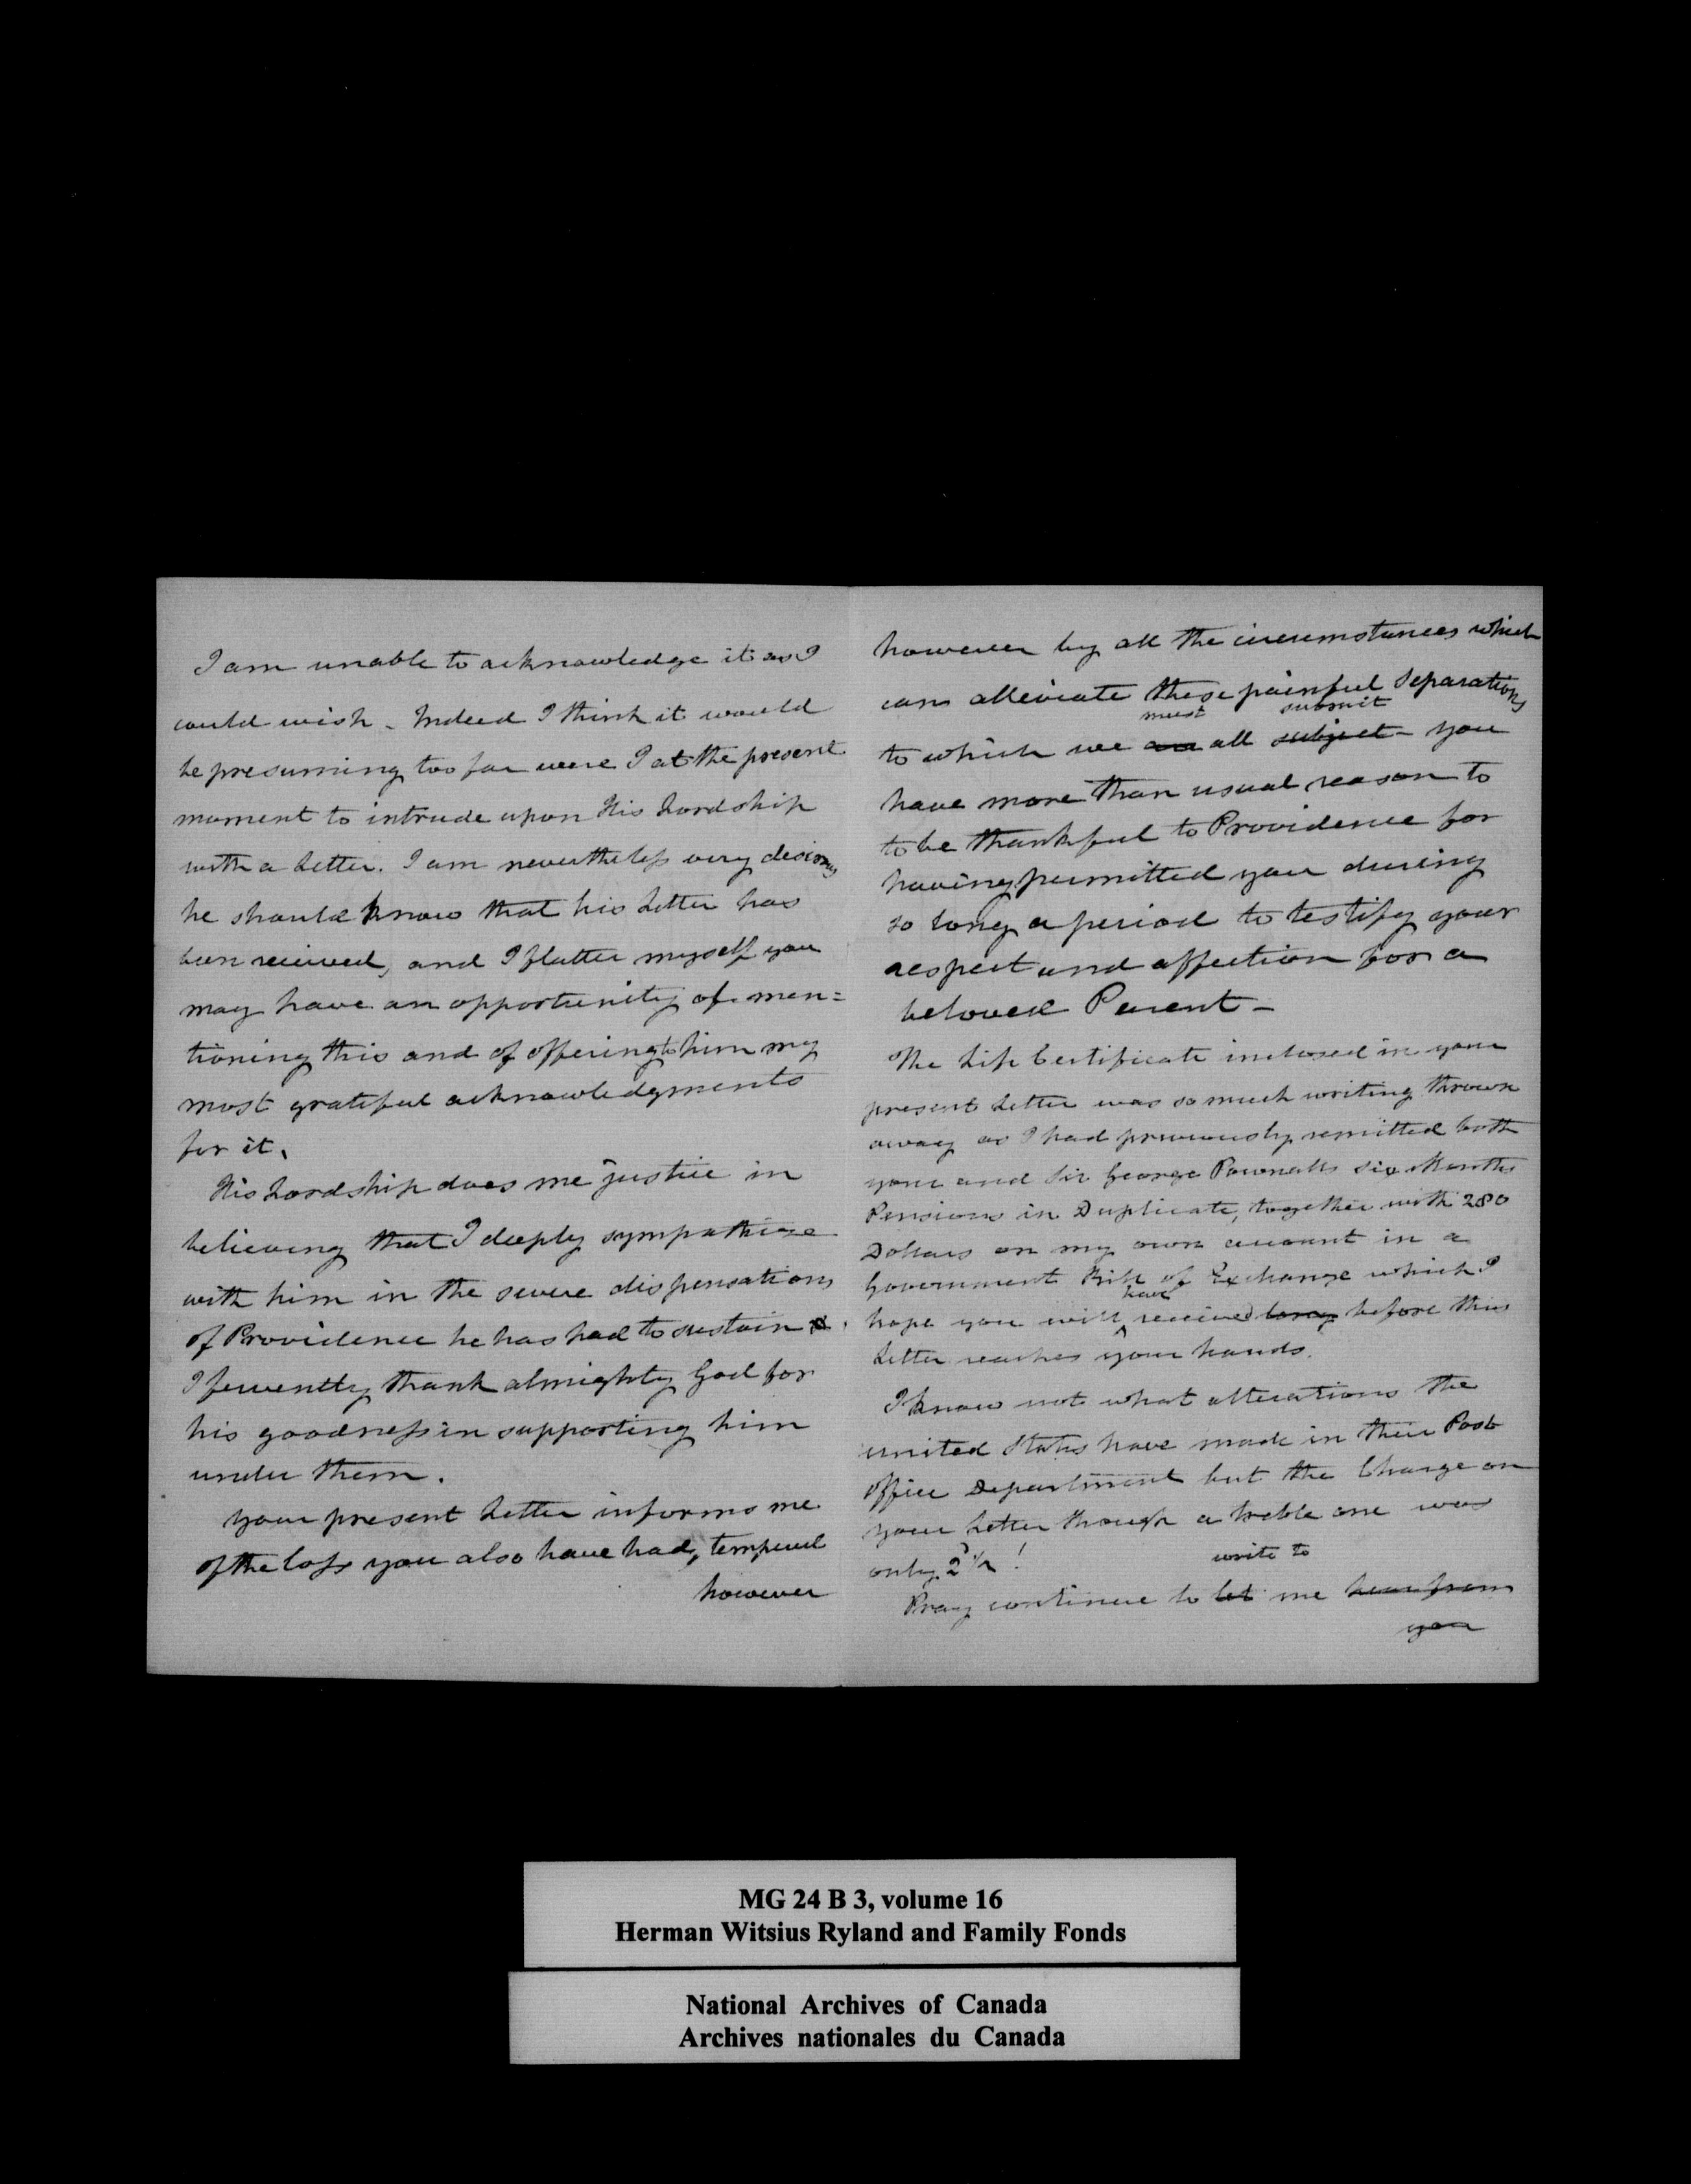 I am unable to acknowledge it as I
could wish - Indeed I think it would
be presuming too far were I at the present
moment to intrude upon His Lordship
with a Letter. I am nevertheless very desirous
he should know that his Letter has
been received, and I flatter myself you
may have an opportunity of men=
tioning this and of offering to him my
most grateful acknowledgments
for it.
His Lordship does me justice in
believing that I deeply sympathise
with him in the severe dispensations
of Providence he has had to sustain.
I fervently thank almighty God for
his goodness in supporting him
under them.
your present Letter informs me
of the loss you also have had, tempered
however
however by all the circumstances which
can alleviate these painful Separations
must submit
to which we are all subject - you
have more than usual reason to
to be thankful to Providence for
having permitted you during
so long a period to testify your
respect and affection for a
beloved Parent -
The Life Certificate inclosed in your
present Letter was so much writing thrown
away as I had previously remitted both
your and Sir George Pownalls Six Months
Pensions in Duplicate, together with 280
Dollars on my own account in a
Government Bill of Exchange which I
have
hope you will received long before this
Letter reaches your hands.
I know not what alterations the
united States have made in their Post
office Department but the Charge on
your Letter though a treble one was
only 2/2 !
write to
Pray continue to let me hear from
you
MG 24 B 3, volume 16
Herman Witsius Ryland and Family Fonds
National Archives of Canada
Archives nationales du Canada